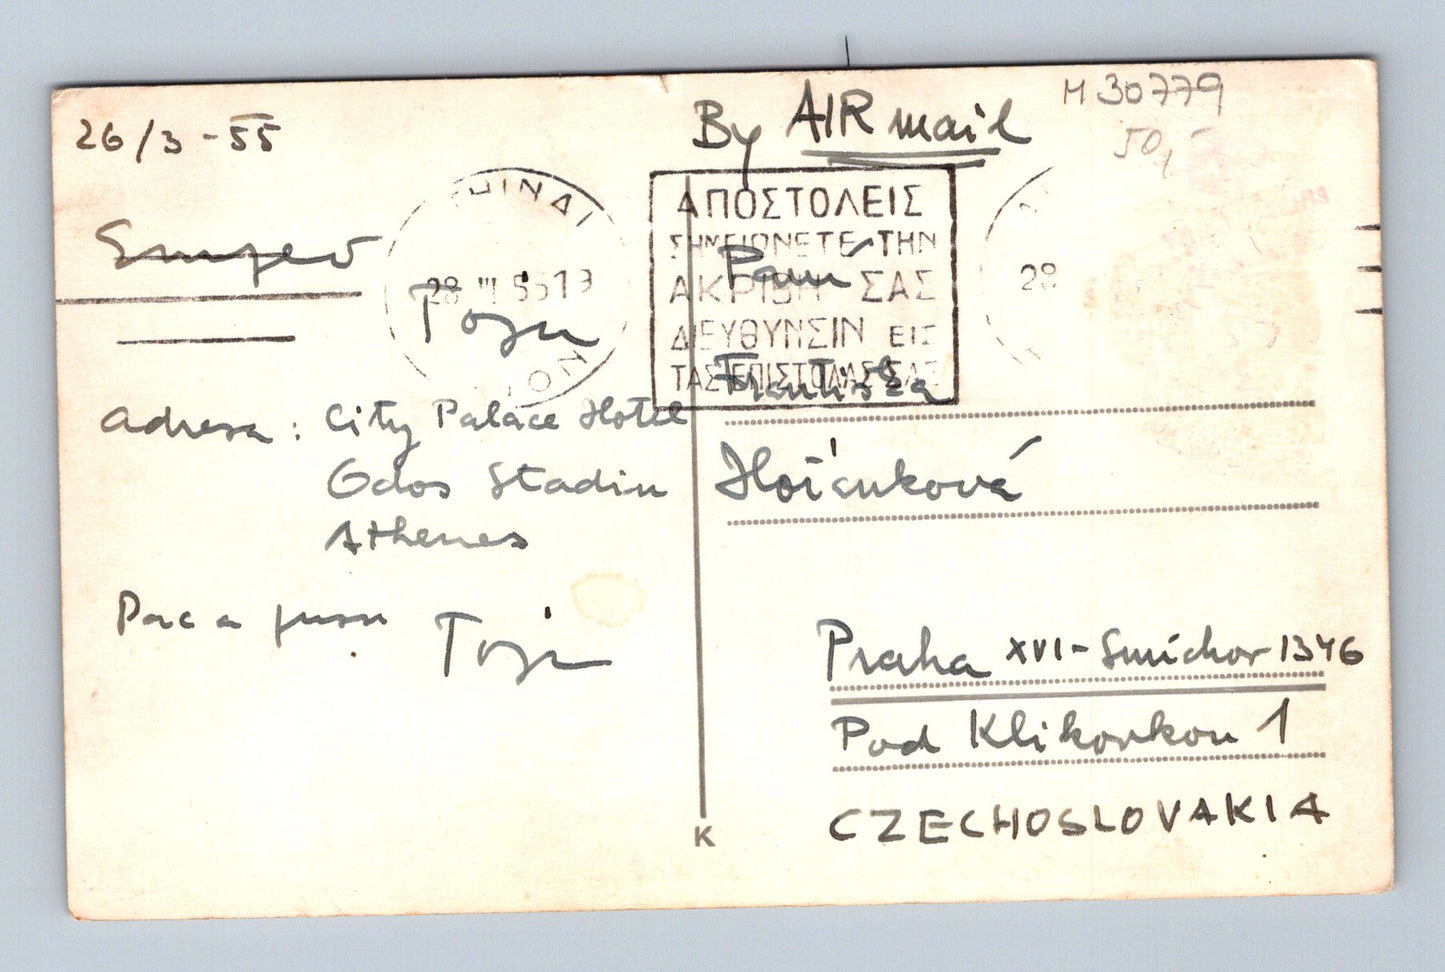 26/3-55
By AIR mail
M 30779
50,
ΑΠΟΣΤΟΛΕΙΣ
ΣΗΜΕΙΩΝΕΤΕ ΤΗΝ
ΑΚΡΙΒΗ ΣΑΣ
ΔΙΕΥΘΥΝΣΙΝ ΕΙΣ
ΤΑΣ ΕΠΙΣΤΟΛΑΣ ΣΑΣ
HINAI
28 III 55 19
28
Adresa: City Palace Hotel
Odos Stadiu
Athenes
Pac a pusu
Paní
Františka
Praha XVI-Smíchov 1346
Pod Klikovkou 1
CZECHOSLOVAKIA
K